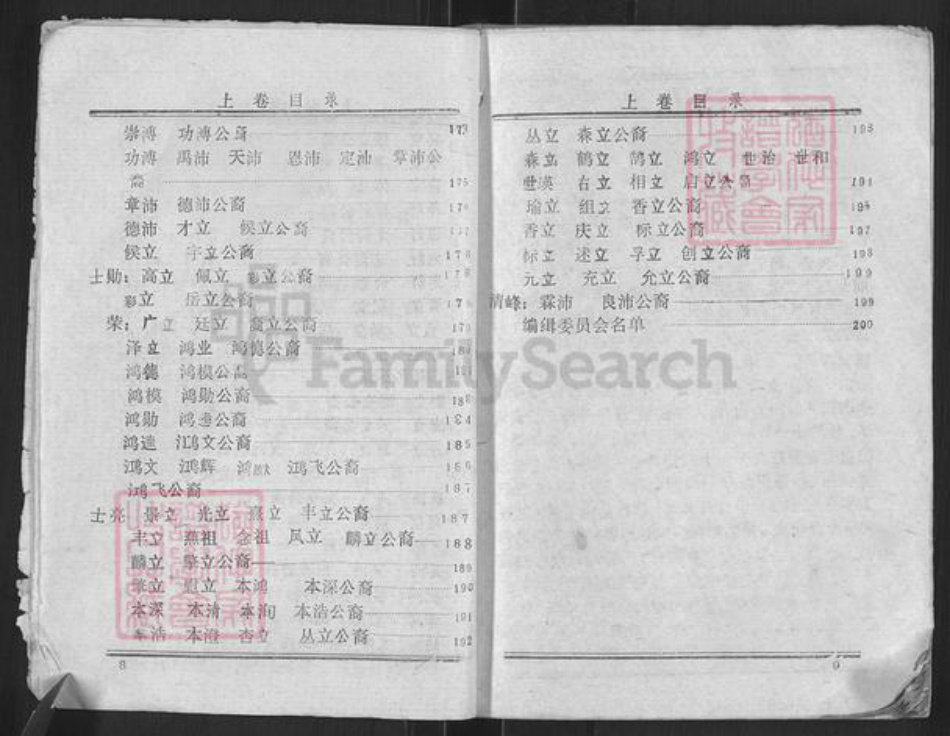 上卷目录
崇溥 功溥公裔 173
功溥 禹沛 天沛 恩沛 定沛 擎沛公
裔 175
章沛 德沛公裔
德沛 才立 候立公裔
候立 宇立公裔
士勋：高立 佩立 彰立公裔
彰立 岳立公裔
荣：广立 廷立 裔立公裔
泽立 鸿业 鸿德公裔
鸿德 鸿模公裔
鸿模 鸿勋公裔
鸿勋 公裔 184
鸿文公裔 185
鸿文 鸿辉 鸿猷 鸿飞公裔 186
鸿飞公裔 187
士亮 景立 光立 立 丰立公裔 187
丰立 燕祖 念祖 凤立 麟立公裔 188
麟立 擎立公裔 189
擎立 慰立 本鸿 本深公裔 190
本深 本清 本洵 本浩公裔 191
本浩 本澄 杏立 丛立公裔 192
8
上卷目录
丛立 森立公裔 193
森立 鹤立 鹄立 鸿立 世治 世和
世瑛 右立 相立 启立公裔
瑜立 组立 香立公裔
香立 庆立 标立公裔
标立 述立 孚立 创立公裔 198
元立 充立 允立公裔 199
清峰：霖沛 良沛公裔 199
编缉委员会名单 200
9
FamilySearch